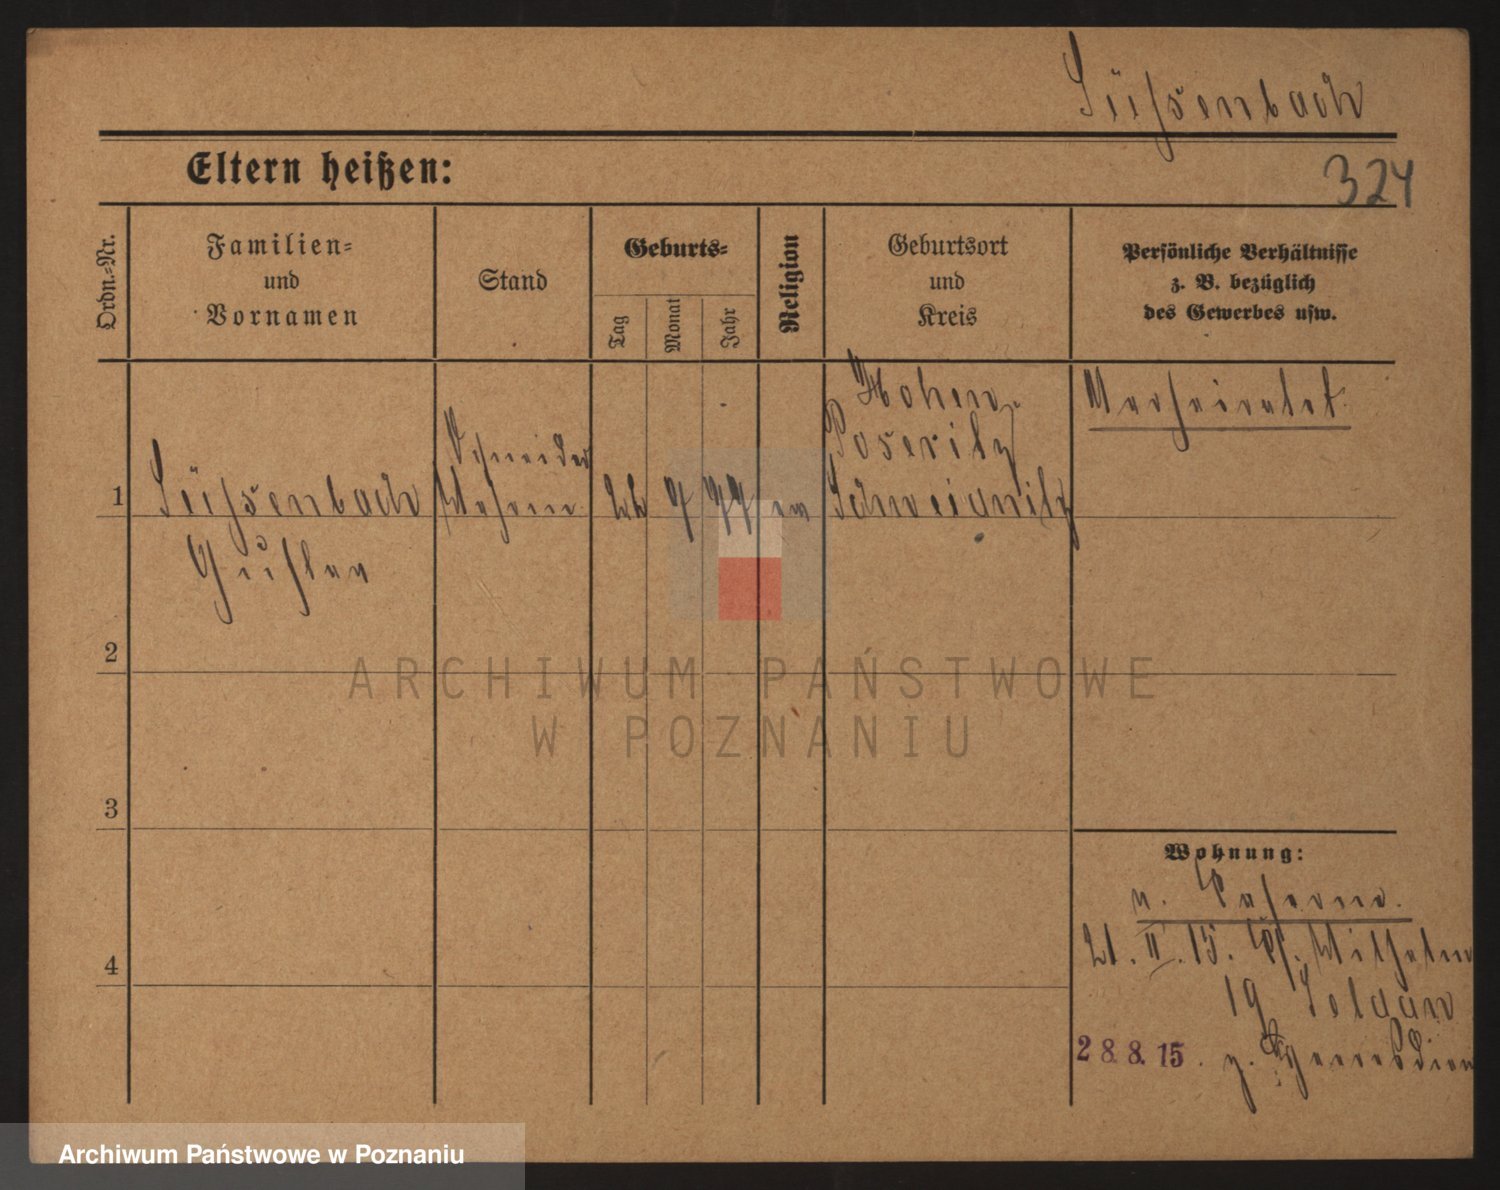 Süßenbach
Eltern heißen:
324
Ordn.=Nr.
Familien=
und
Vornamen
Stand
Geburts=
Tag
Monat
Jahr
Religion
Geburtsort
und
Kreis
Persönliche Verhältnisse
z. B. bezüglich
des Gewerbes usw.
Hohen
Poseritz
Verheiratet.
Schneider
1 Süßenbach 22 7 77 ev Schweidnitz
Gustav
2
3
4
Wohnung:
n.
21. II. 15. Wilhelm
19 Soldau
28.8.15. z. Heeresdien
ARCHIWUM PAŃSTWOWE
W POZNANIU
Archiwum Państwowe w Poznaniu